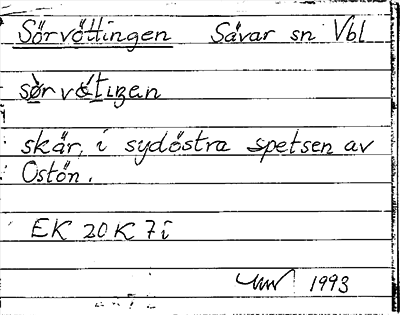 Sörvöttingen Sävar sn Vbl
skär i sydöstra spetsen av
Ostön.
EK 20 K 7i
1993